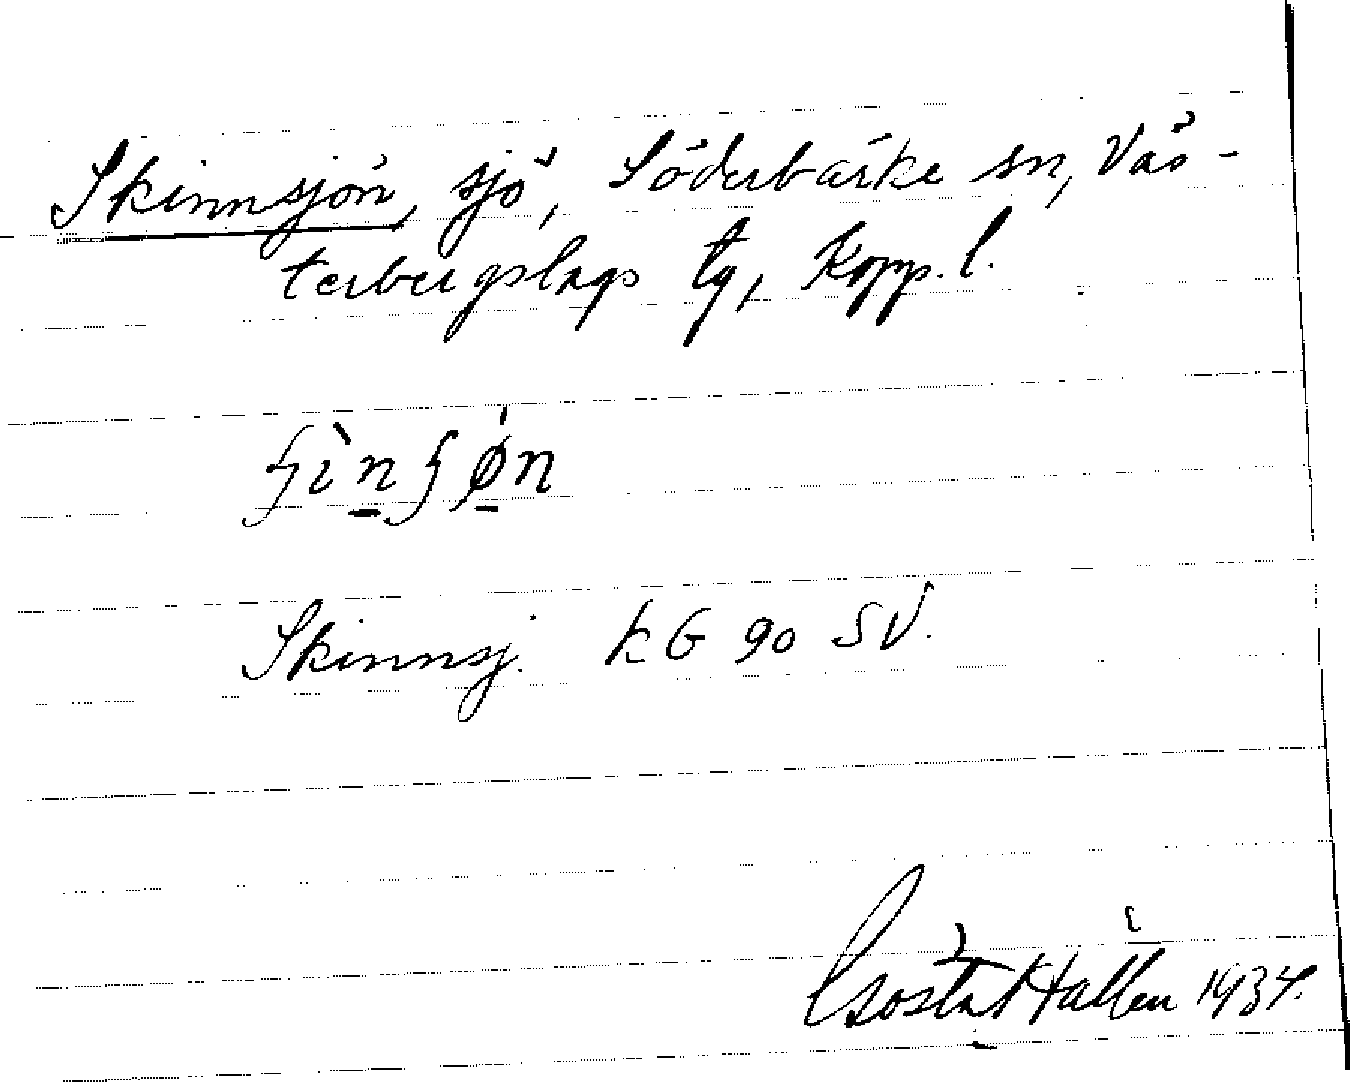 Skinnsjön, sjö, Söderbärke sn, Väs-
terbergslags tg, Kopp. l.
Skinnsj. KG 90 SV.
Gösta Hallén 1934.